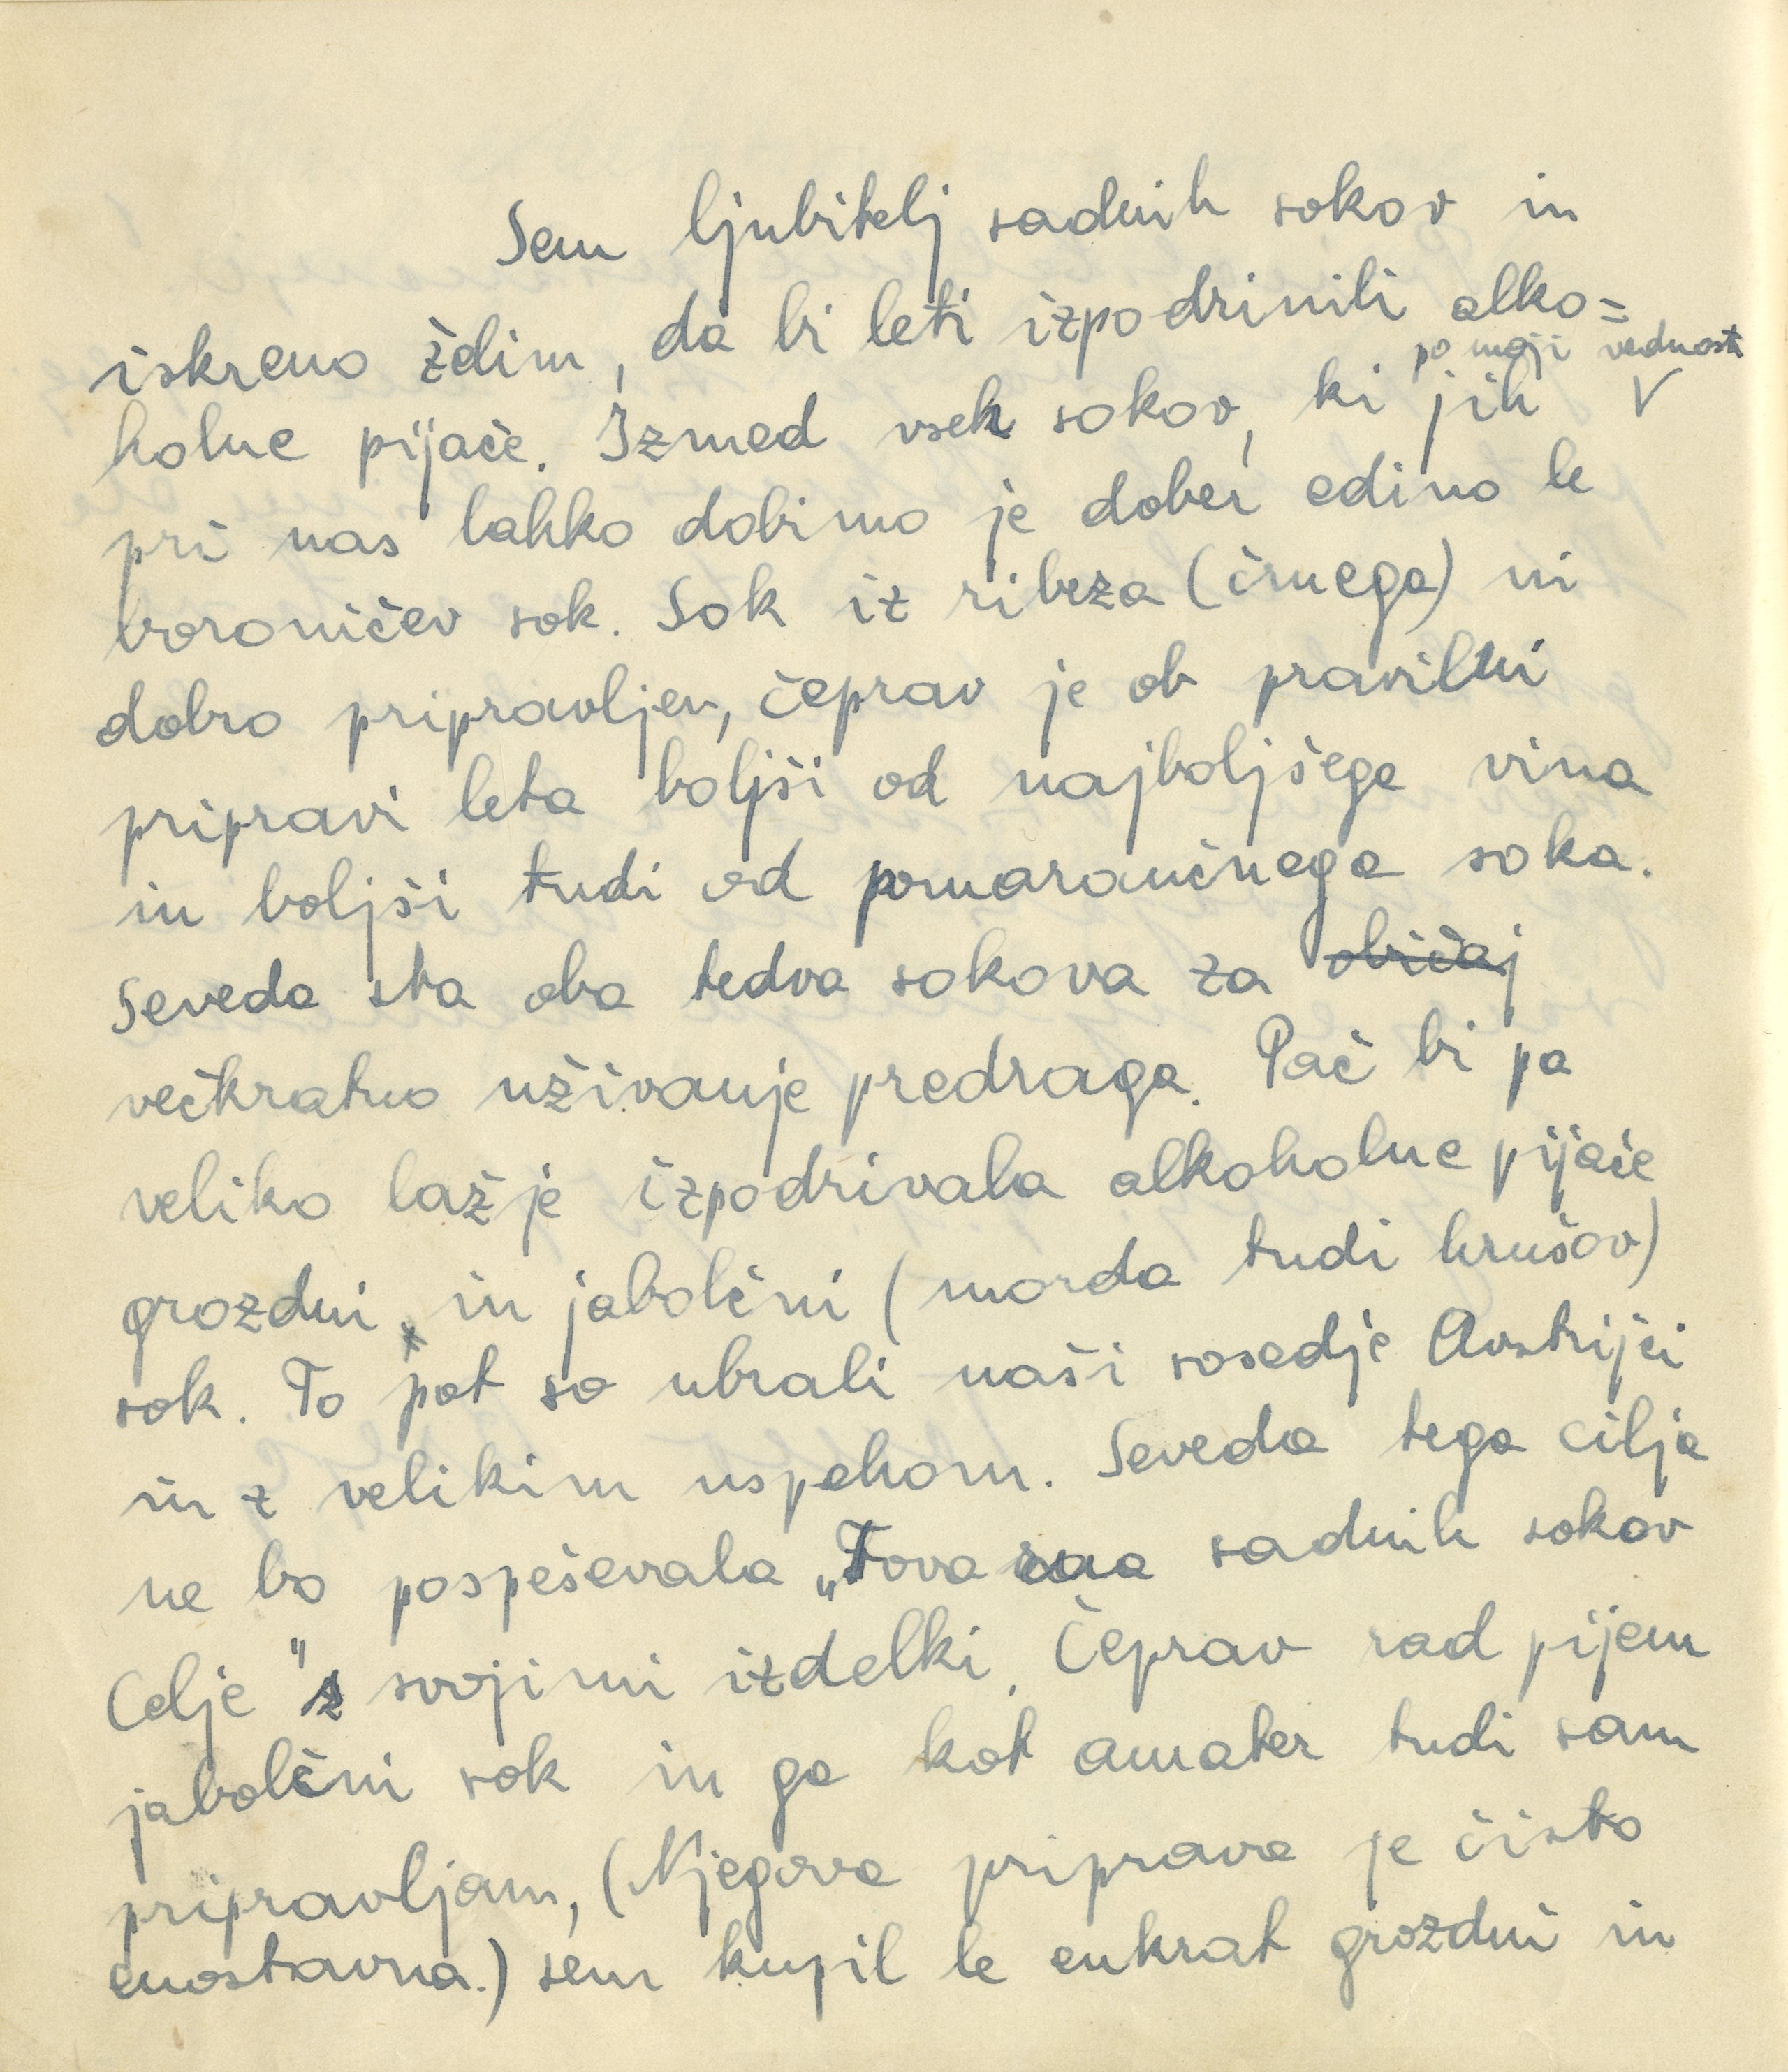 Sem ljubitelj sadnih sokov in
iskreno ždim, da bi leti izpodrinili alko=
po moji vednosti
holne pijače. Izmed vseh sokov, ki jih V
pri nas lahko dobimo je dober edino le
borovničev sok. Sok iz ribeza (črnega) ni
dobro pripravljen, čeprav je ob pravilni
pripravi leta boljši od najboljšega vina
in boljši tudi od pomarančnega soka.
Seveda sta oba tedva sokova za običaj
večkratno uživanje predraga. Pač bi pa
veliko lažje izpodrivala alkoholne pijače
grozdni in jabolčni (morda tudi hrušov)
sok. To pot so ubrali naši sosedje Avstrijci
in z velikim uspehom. Seveda tega cilja
ne bo pospeševala „Tovarna sadnih sokov
Celje" s svojimi izdelki. Čeprav rad pijem
jabolčni sok in ga kot amater tudi sam
pripravljam, (Njegova priprava je čisto
enostavna.) sem kupil le enkrat grozdni in